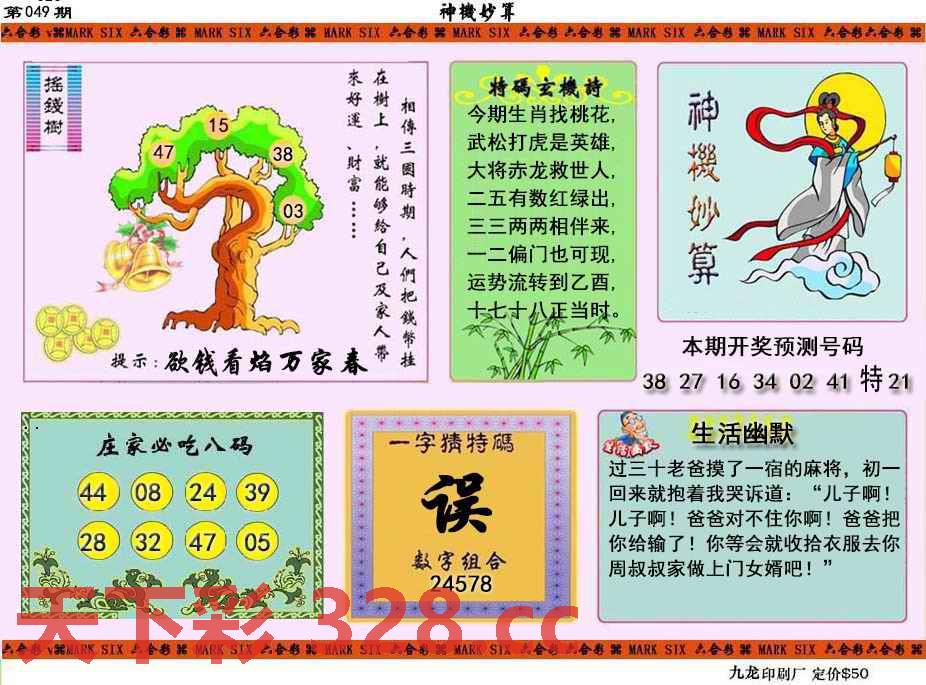 第049期
神機妙算
六合彩 MARK SIX 六合彩 MARK SIX 六合彩 MARK SIX 六合彩 MARK SIX 六合彩 MARK SIX 六合彩 MARK SIX 六合彩
搖錢樹
相傳三國時期,人們把錢幣挂
在樹上,就能够給自己及家人帶
來好運、財富……
15
47
38
03
提示:欲钱看焰万家春
特碼玄機詩
今期生肖找桃花,
武松打虎是英雄,
大将赤龙救世人,
二五有数红绿出,
三三两两相伴来,
一二偏门也可现,
运势流转到乙酉,
十七十八正当时。
神機妙算
本期开奖预测号码
38 27 16 34 02 41 特21
庄家必吃八码
44 08 24 39
28 32 47 05
一字猜特碼
误
数字组合
24578
生活幽默
生活幽默
过三十老爸摸了一宿的麻将,初一
回来就抱着我哭诉道:“儿子啊!
儿子啊!爸爸对不住你啊!爸爸把
你给输了!你等会就收拾衣服去你
周叔叔家做上门女婿吧!”
天下彩 328.cc
六合彩 MARK SIX 六合彩 MARK SIX 六合彩 MARK SIX 六合彩 MARK SIX 六合彩 MARK SIX 六合彩 MARK SIX 六合彩
九龙印刷厂 定价$50